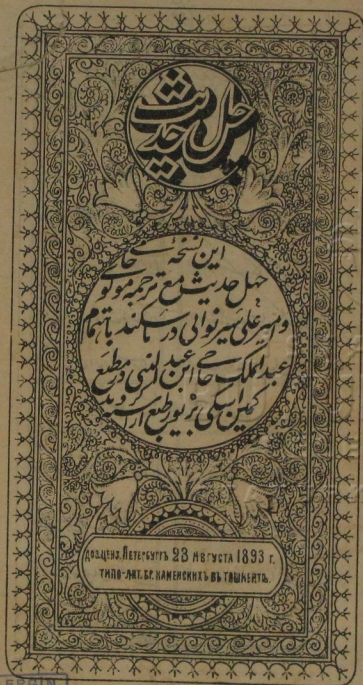 چهل حدیث
این نسخهٔ
چهل حدیث مع ترجمه مولوی جامی
و میر علی شیر نوائی در تاشکند باهتمام
عبدالملک حاجی ابن عبد النبی در مطبع
بزیور طبع آراسته گردید
ДОЗ.ЦЕНЗ. ПЕТЕРБУРГЪ 23 АВГУСТА 1893 г.
ТИПО-ЛИТ. БР. КАМЕНСКИХЪ ВЪ ТАШКЕНТѢ.